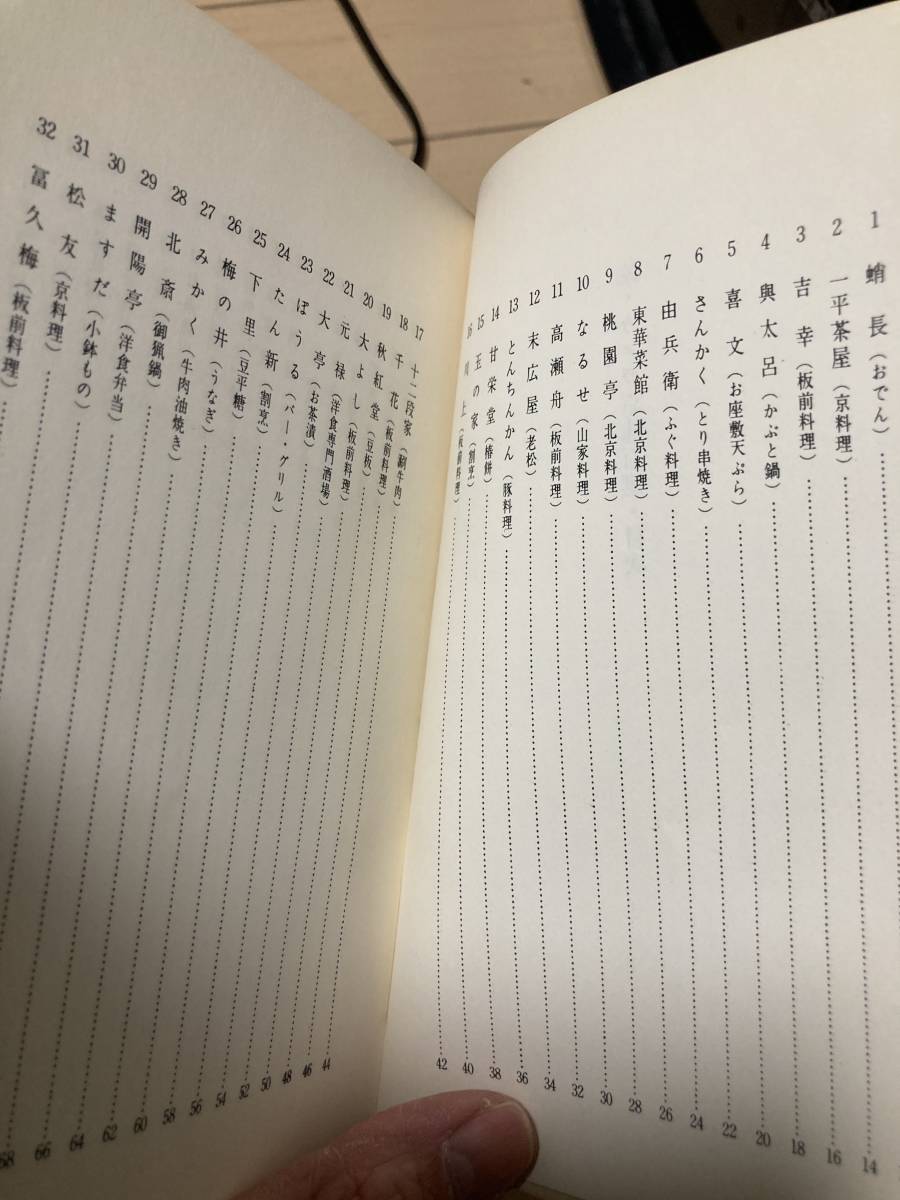 1 蛸長(おでん)
2 一平茶屋(京料理)
3 吉幸(板前料理)
4 與太呂(かぶと鍋)
5 喜文(お座敷天ぷら)
6 さんかく(とり串焼き)
7 由兵衛(ふぐ料理)
8 東華菜館(北京料理)
9 桃園亭(北京料理)
10 なるせ(山家料理)
11 高瀬舟(板前料理)
12 末広屋(老松)
13 とんちんかん(豚料理)
14 甘栄堂(椿餅)
15 玉の家(割烹)
16 川上(板前料理)
14 16 18 20 22 24 26 28 30 32 34 36 38 40 42
17 十二段家(鋤牛肉)
18 千花(板前料理)
19 秋紅堂(豆板)
20 大よし(板前料理)
21 元禄(洋食専門酒場)
22 大亭(お茶漬)
23 ぼうる(バー・グリル)
24 たん新(割烹)
25 下里(豆平糖)
26 梅の井(うなぎ)
27 みかく(牛肉油焼き)
28 北斎(御猟鍋)
29 開陽亭(洋食弁当)
30 ますだ(小鉢もの)
31 松友(京料理)
32 冨久梅(板前料理)
44 46 48 50 52 54 56 58 60 62 64 66 68